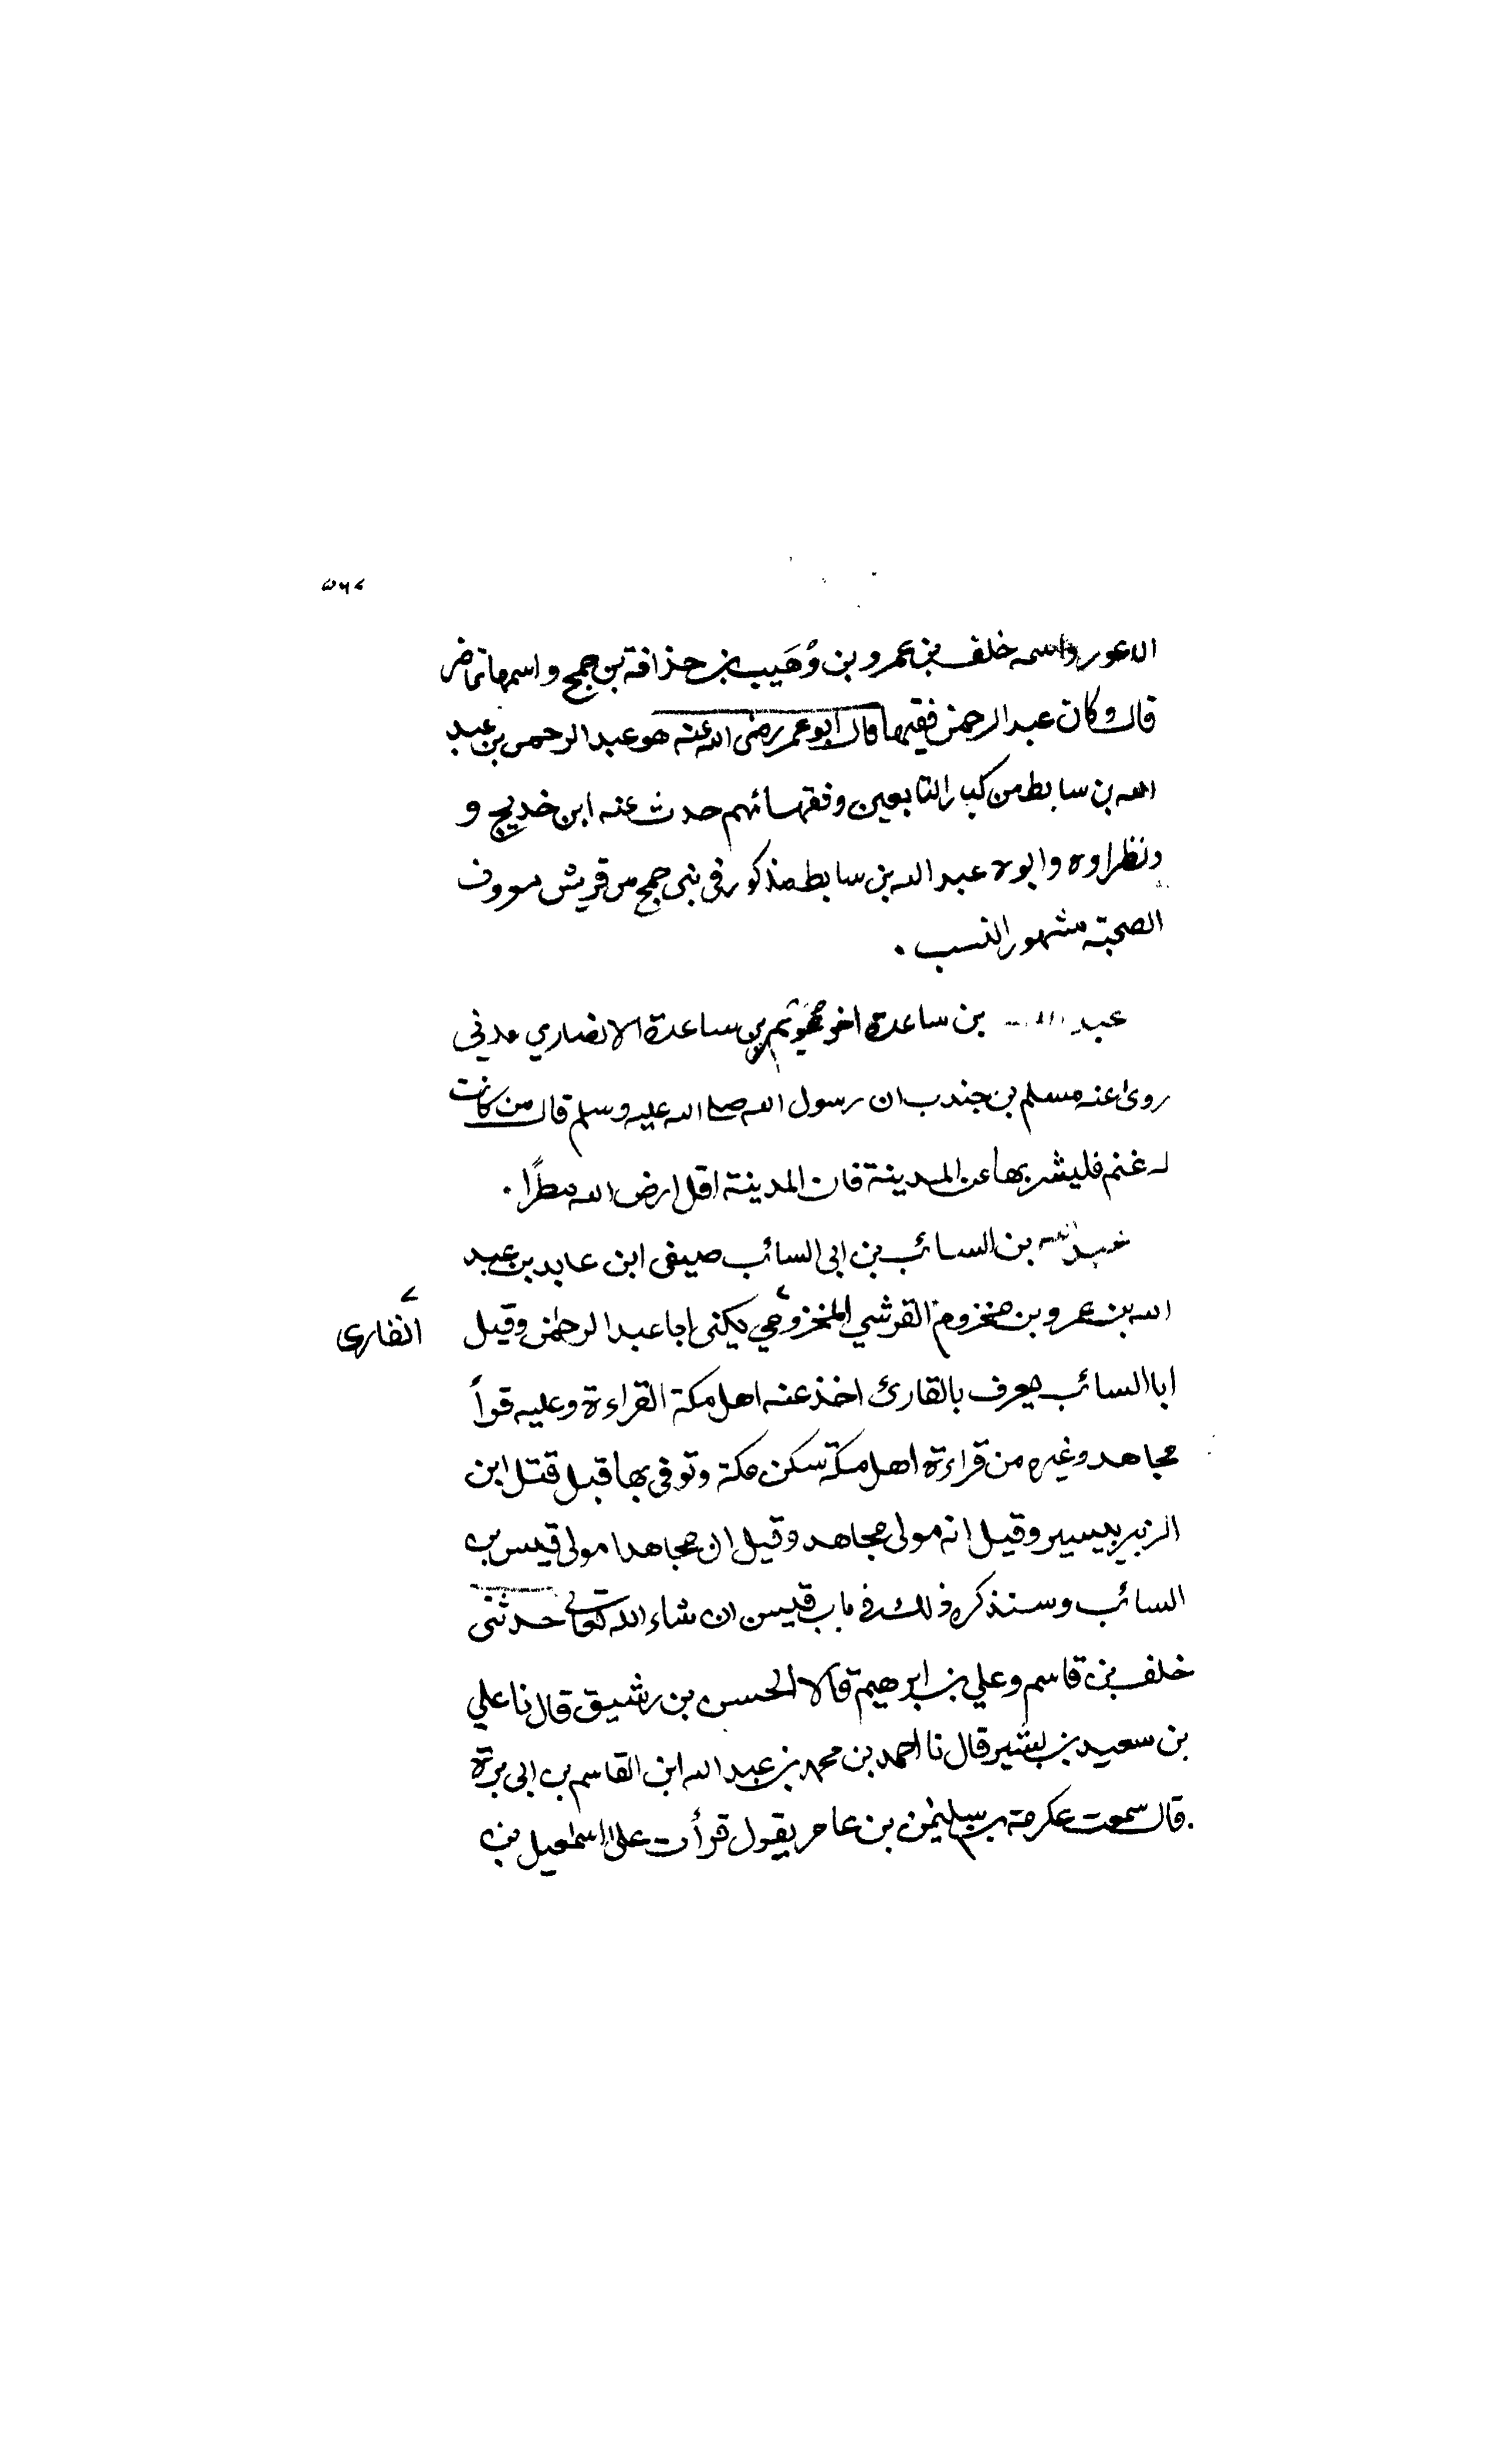 الاعور واسمه خلف بن عمرو بن وُهَيب بن حذافة بن جمح واسمها تماضر
قال وكان عبد الرحمن فقيها قال ابو عمر رضى الله عنه هو عبد الرحمن بن عبد
الله بن سابط من كبار التابعين وفقهائهم حدث عنه ابن خديج و
ونظراوه وابوه عبد الله بن سابط مذكور فى بنى جمح من قريش معروف
الصحبة مشهور النسب .
عبد الله بن ساعدة اخو عويم بن ساعدة الانصاري مدنى
روى عنه مسلم بن جندب ان رسول الله صلى الله عليه وسلم قال من كانت
له غنم فليشر بها عن المدينة فان المدينة اقل ارض الله مطرًا .
عبد الله بن السائب بن ابى السائب صيفى ابن عابد بن عبد
الله بن عمرو بن مخزوم القرشي المخزومي يكنى ابا عبد الرحمٰن وقيل
القارى
ابا السائب يعرف بالقارئ اخذ عنه اهل مكة القراءة وعليه قرأ
مجاهد وغيره من قراءة اهل مكة سكن مكة وتوفى بها قبل قتل ابن
الزبير بيسير وقيل انه مولى مجاهد وقيل ان مجاهدا مولى قيس بن
السائب وسنذكره ذلك فى باب قيس ان شاء الله تعالى حدثنى
خلف بن قاسم وعلي بن ابرهيم قالا الحسن بن رشيق قال نا علي
بن سعيد بن بشير قال نا احمد بن محمد بن عبد الله ابن القاسم بن ابى بزة
قال سمعت عكرمة بن سليمٰن بن عامر يقول قرأت على اسمٰعيل بن